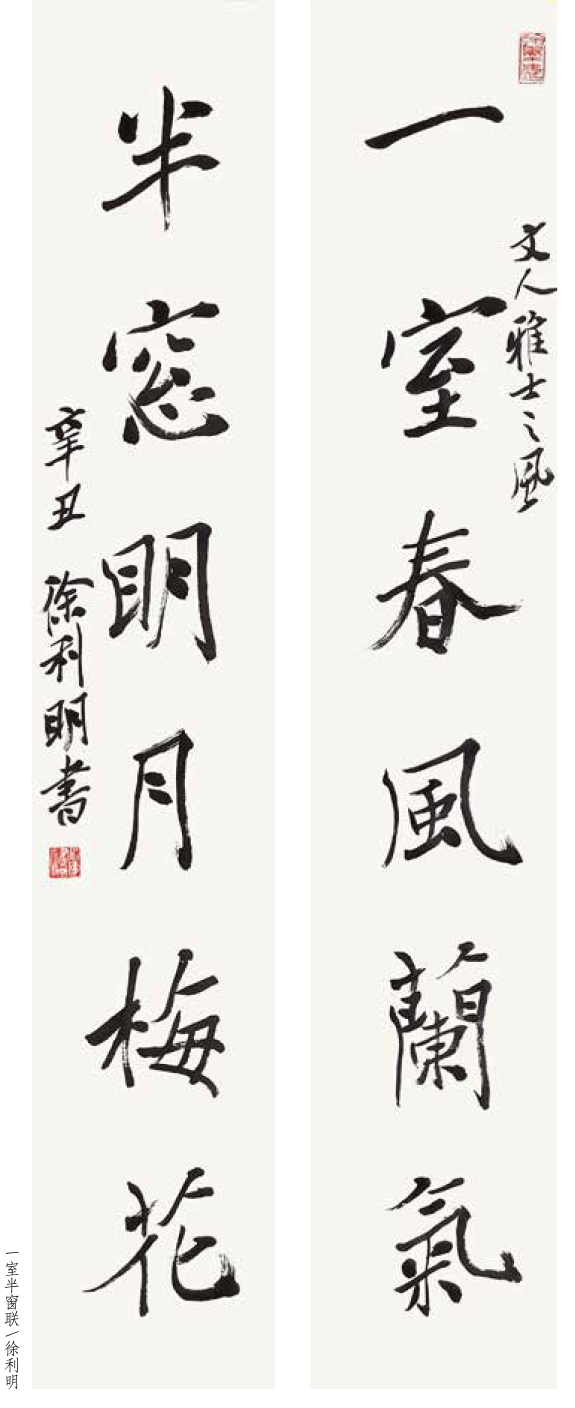 文人雅士之風
一室春風蘭氣
半窓明月梅花
辛丑 徐利明書
一室半窗联/徐利明